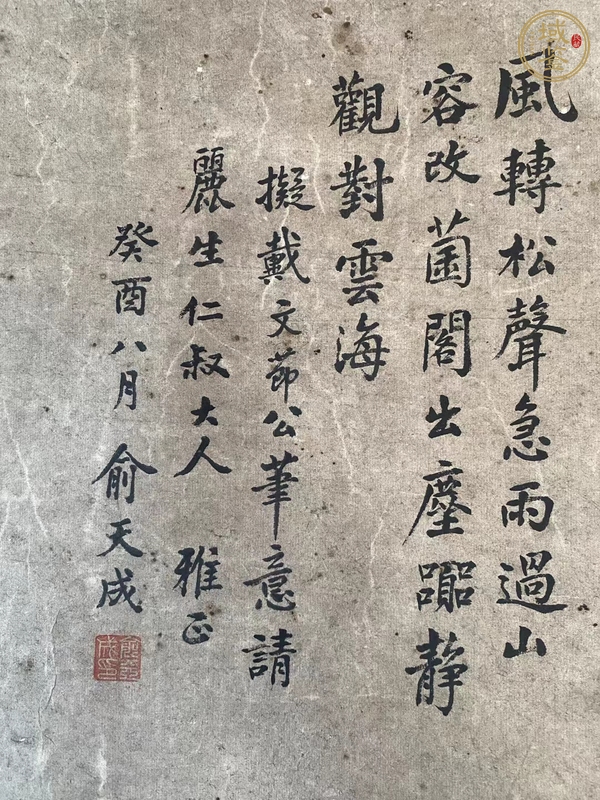 風轉松聲急雨過山
容改菌閣出塵囂静
觀對雲海
擬戴文節公筆意請
麗生仁叔大人 雅正
癸酉八月 俞天成
俞天成印